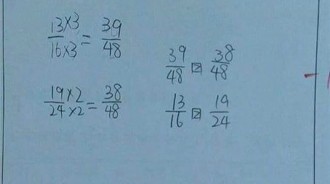 13×3/16×3 = 39/48
39/48 > 38/48
19×2/24×2 = 38/48
13/16 > 19/24